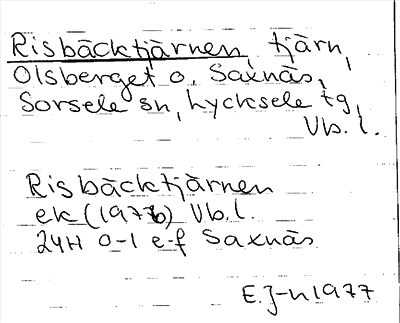 Risbäcktjärnen, tjärn,
Olsberget o. Saxnäs,
Sorsele sn, Lycksele tg,
Vb. l.
Risbäcktjärnen
ek (1976) Vb. l.
24H 0-1 e-f Saxnäs
E. J-n 1977